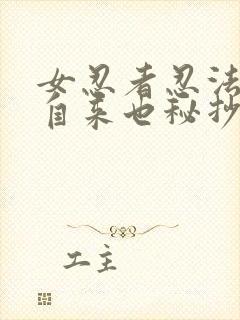 女忍者忍法
自来也秘抄
工主